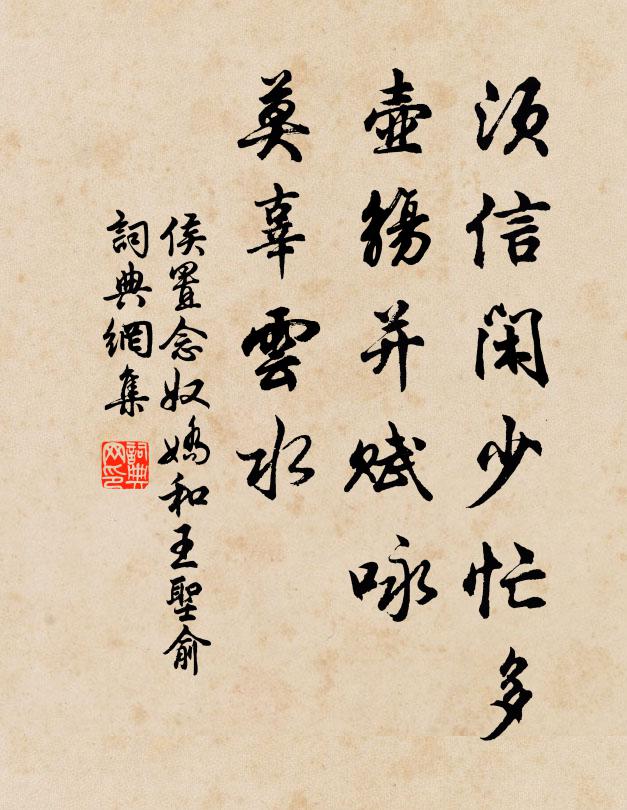 須信閑少忙多
壺觴并賦咏
莫辜雲水
侯置念奴嬌和王聖俞
詞典網集
詞典网印